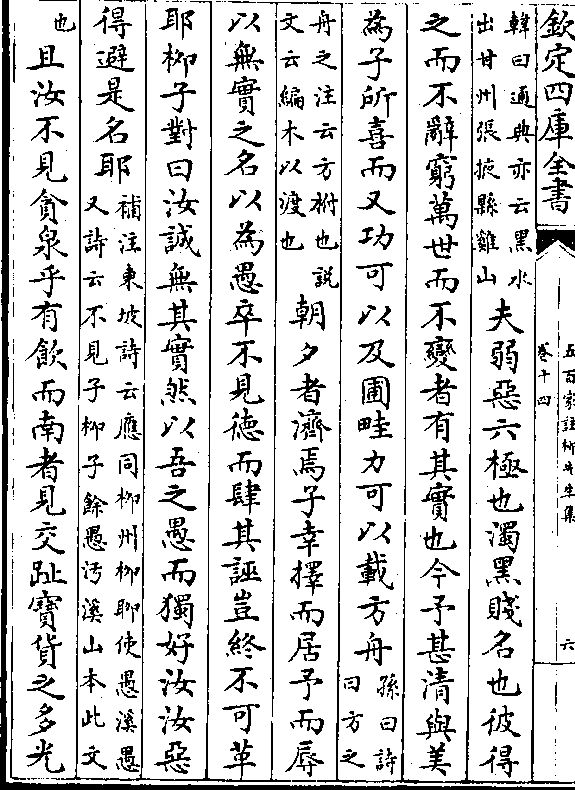 欽定四庫全書
五百家註柳先生集
卷十四
六
韓曰通典亦云黑水
出甘州張掖縣雞山
夫弱惡六極也濁黑賤名也彼得
之而不辭窮萬世而不變者有其實也今予甚清與美
為子所喜而又功可以及圃畦力可以載方舟
孫曰詩
曰方之
舟之注云方泭也說
文云編木以渡也
朝夕者濟焉子幸擇而居予而辱
以無實之名以為愚卒不見德而肆其誣豈終不可革
耶柳子對曰汝誠無其實然以吾之愚而獨好汝汝惡
得避是名耶
補注東坡詩云應同柳州柳聊使愚溪愚
又詩云不見子柳子餘愚汚溪山本此文
也
且汝不見貪泉乎有飲而南者見交趾寶貨之多光